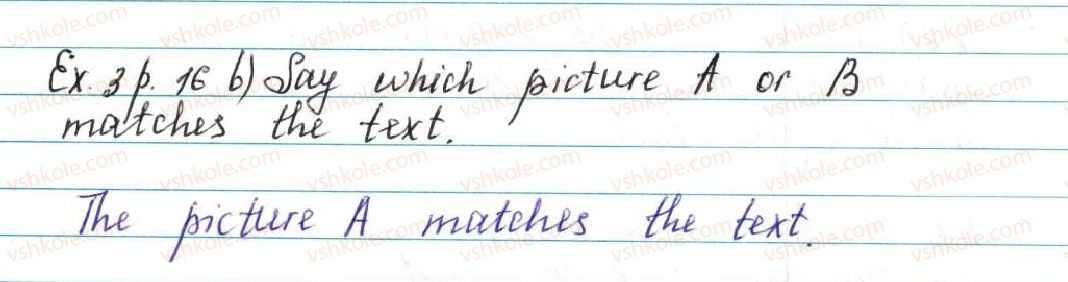 Ex. 3 p. 16 b) Say which picture A or B
matches the text.
The picture A matches the text.